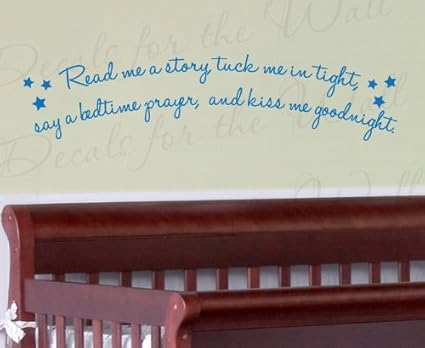 Decals for the Wall
Read me a story, tuck me in tight,
say a bedtime prayer, and kiss me goodnight.
Decals for the Wall